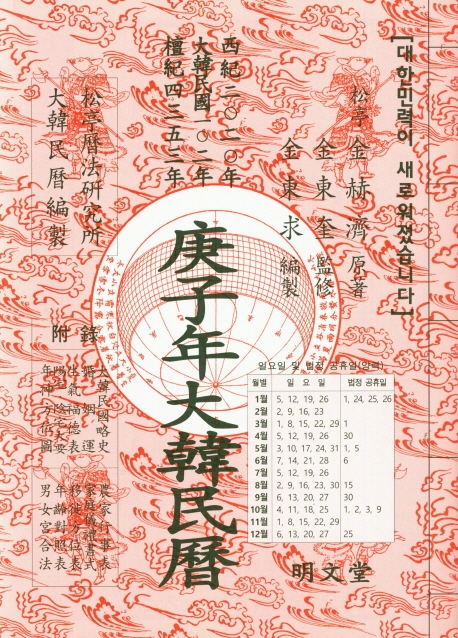 [대한민력이 새로워졌습니다]
松亭 金赫濟 原著
金東奎 監修
金東求 編製
西紀二〇二〇年
大韓民國一〇二年
檀紀四三五三年
松亭曆法硏究所
大韓民曆編製
庚子年大韓民曆
附錄
大韓民國略史
婚姻運
生氣福德表
年神方位圖
農家行事表
家庭儀禮書式
移徙方位表
年齡對照表
男女宮合法
일요일 및 법정 공휴일(양력)
월별 일 요 일 법정 공휴일
1월 5, 12, 19, 26 1, 24, 25, 26
2월 2, 9, 16, 23
3월 1, 8, 15, 22, 29 1
4월 5, 12, 19, 26 30
5월 3, 10, 17, 24, 31 1, 5
6월 7, 14, 21, 28 6
7월 5, 12, 19, 26
8월 2, 9, 16, 23, 30 15
9월 6, 13, 20, 27 30
10월 4, 11, 18, 25 1, 2, 3, 9
11월 1, 8, 15, 22, 29
12월 6, 13, 20, 27 25
明文堂